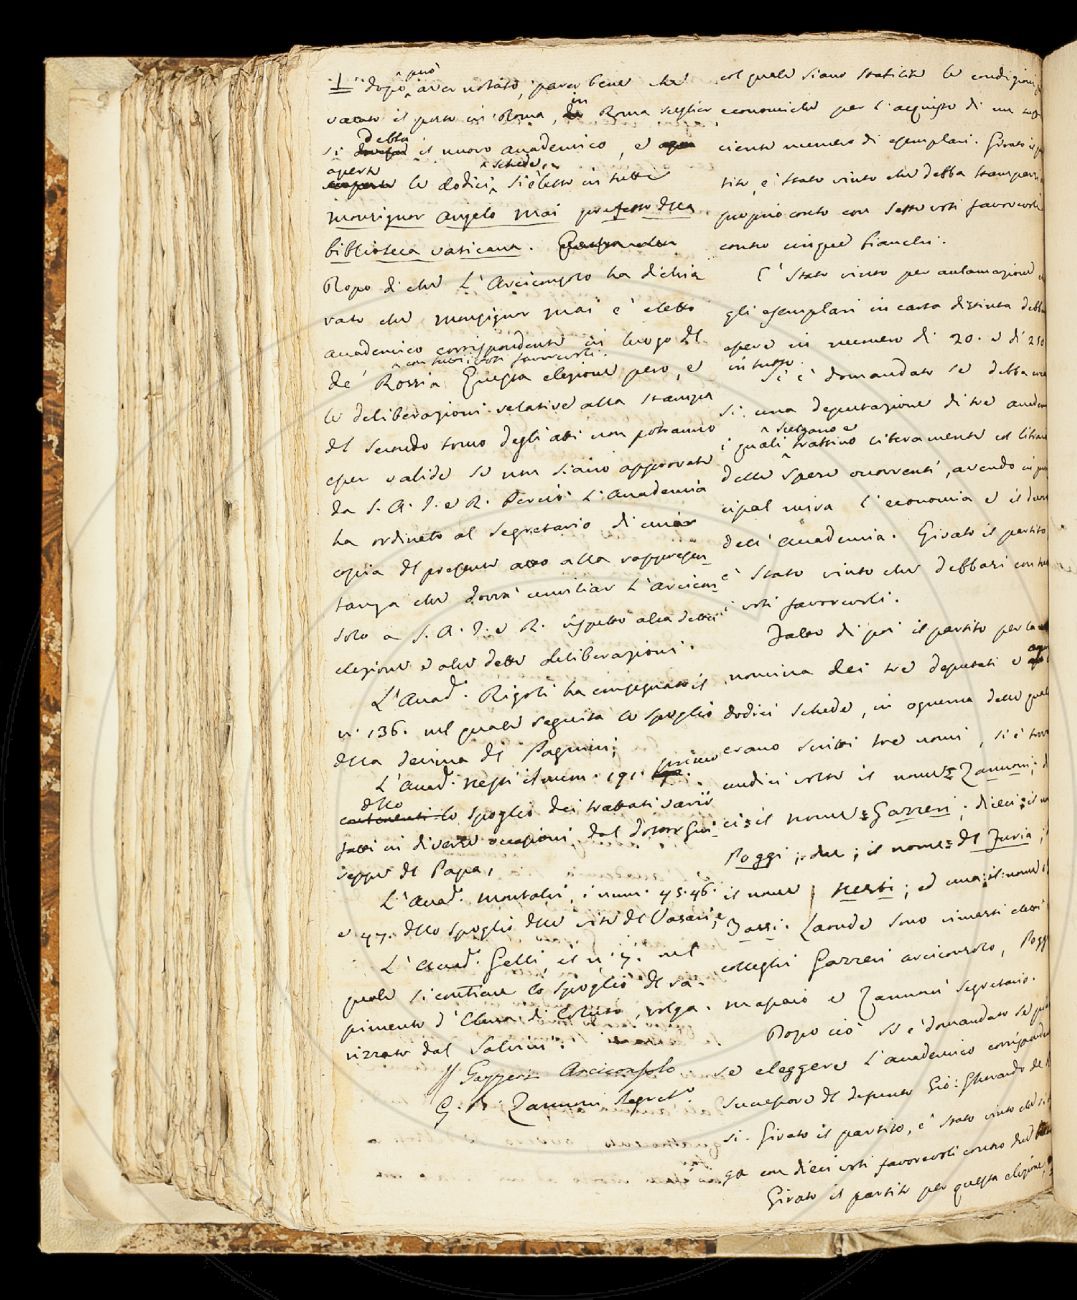 dopo però aver notato, parer bene che
vacato il posto in Roma, in Roma sceglier
si debba il nuovo accademico, e
aperte le dodici schede, si è letto in tutte
monsignor angelo Mai prefetto della
biblioteca vaticana.
Dopo di che L'Arciconsolo ha dichia
rato che monsignor Mai è eletto
accademico corrispondente in luogo del
de' Rossi con tutti i voti favorevoli. Questa elezione però, e
le deliberazioni relative alla stampa
del secondo tomo degli atti non potranno
esser valide se non siano approvate
da S. A. I. e R. Perciò L'Accademia
ha ordinato al Segretario di
copia del presente atto alla rappresen
tanza che dovrà umiliar L'Arcicon
solo a S. A. I. e R. rispetto alla detta
elezione e alle dette deliberazioni.
L'Accad. Rigoli ha consegnato il
n. 136. nel quale seguita lo spoglio
della decina del Paganini;
L'Accad. Nesti il num. 191. primo
dello spoglio dei trattati varii
fatti in diverse occasioni dal dottor Giu
seppe del Papa;
L'Accad. Montalvi, i num. 45. 46.
e 47. dello spoglio delle vite del Vasari; e
L'Accad. Gelli, il n. 7. nel
quale si contiene lo spoglio del
pimento d' volga
rizzato dal Salvini.
Gazzeri Arciconsolo
G. B. Zannoni Segret.
col quale siano stabilite le condizioni
economiche per l'acquisto di un suffi
ciente numero di esemplari. Girato il par
tito, è stato vinto che debba stamparsi
proprio conto con sette voti favorevoli
contro cinque bianchi.
È stato vinto per acclamazione
gli esemplari in carta distinta debba
essere in numero di 20. e di 250
in tutto.
Si è domandato se debba
si una deputazione di tre accadem
i quali scelgano e trattino liberamente col
delle spese occorrenti, avendo in prin
cipal mira l'economia e il
dell'accademia. Girato il partito
è stato vinto che debbasi con tutti
i voti favorevoli.
Fatto di poi il partito per la
nomina dei tre deputati e
dodici schede, in ognuna delle quali
erano scritti tre nomi, si è trovato
undici volte il nome: Zannoni;
ci: il nome: Gazzeri; dieci: il
Poggi; due; il nome: del Furia;
il nome Nesti; ed una: il nome
Zassi. Laonde sono rimasti eletti
colleghi Gazzeri arciconsolo, Poggi
massaio e Zannoni segretario.
Dopo ciò si è domandato se
se eleggere L'accademico corrispondente
successore del defunto Gio: Gherardo de Ros
si. Girato il partito, è stato vinto che
ga con dieci voti favorevoli contro due
Girato il partito per questa elezione,